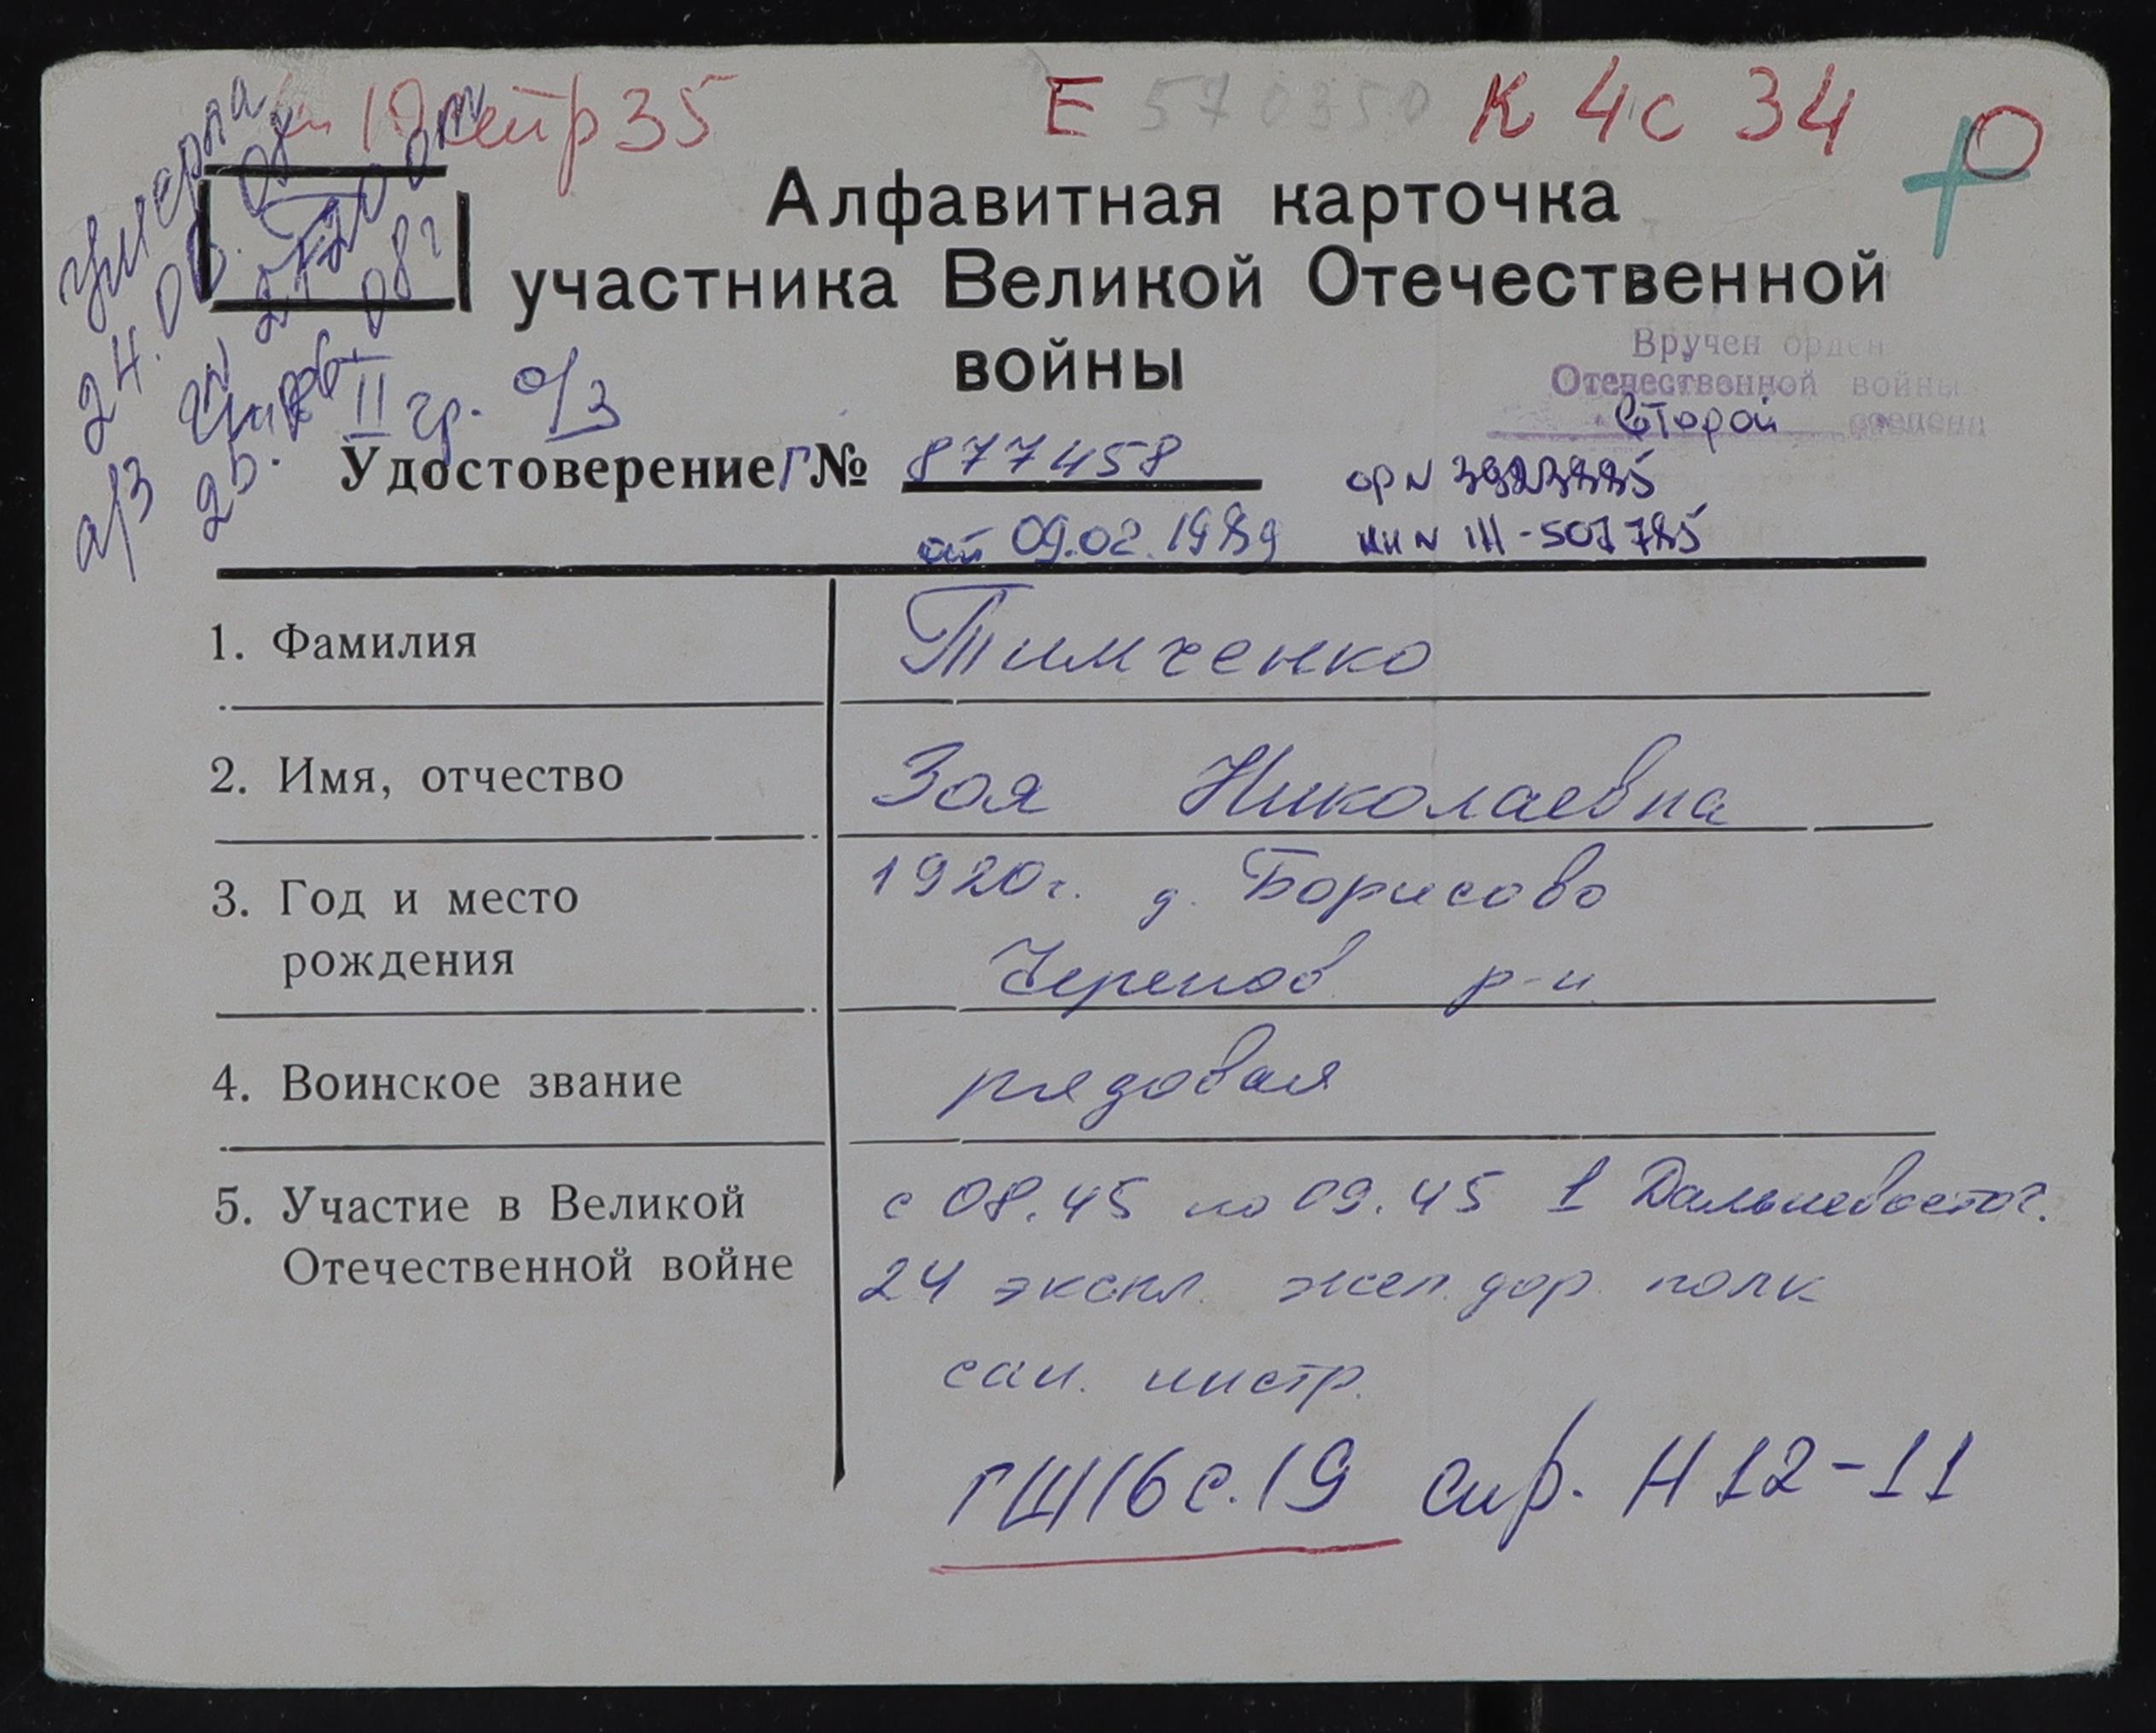 19 метр 35 Е 570350 К 4с 34
умерла
24.06.08
Алфавитная карточка
участника Великой Отечественной
войны
Вручен орден
Отечественной войны
второй степени
II гр. о/з
а/з
Удостоверение Г № 877458
ор N
от 09.02.1989
кн N III-507785
1. Фамилия Тимченко
2. Имя, отчество Зоя Николаевна
3. Год и место 1920г. д. Борисово
рождения Черепов р-н
4. Воинское звание рядовая
5. Участие в Великой с 08.45 по 09.45 1 Дальневосточ.
Отечественной войне 24 экспл. жел. дор. полк
сан. инстр.
ГШ 16 с. 19 Н 12-11